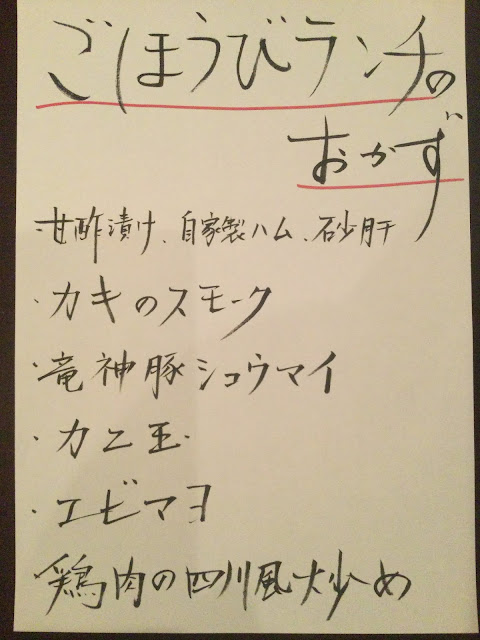 ごほうびランチの
おかず
・甘酢漬け、自家製ハム、砂肝
・カキのスモーク
・竜神豚シュウマイ
・カニ玉
・エビマヨ
鶏肉の四川風炒め